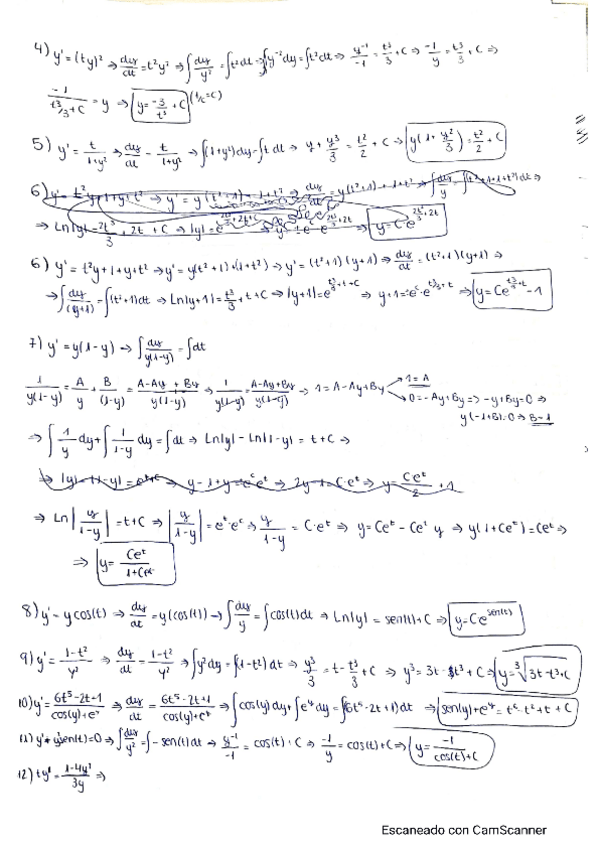 4) y' = (ty)² ⇒ dy/dt = t²y² ⇒ ∫ dy/y² = ∫ t² dt ⇒ ∫ y⁻² dy = ∫ t² dt ⇒ y⁻¹/-1 = t³/3 + C ⇒ -1/y = t³/3 + C ⇒
-1/(t³/3 + C) = y ⇒ y = -3/t³ + C
5) y' = t/(1+y²) ⇒ dy/dt = t/(1+y²) ⇒ ∫(1+y²)dy = ∫ t dt ⇒ y + y³/3 = t²/2 + C ⇒ y(1 + y²/3) = t²/2 + C
⇒ Ln|y| = 2t³/3 + 2t + C ⇒
6) y' = t²y + 1 + y + t² ⇒ y' = y(t²+1) + (1+t²) ⇒ y' = (t²+1)(y+1) ⇒ dy/dt = (t²+1)(y+1) ⇒
⇒ ∫ dy/(y+1) = ∫(t²+1)dt ⇒ Ln|y+1| = t³/3 + t + C ⇒ |y+1| = e^(t³/3+t+C) ⇒ y+1 = e^c·e^(t³/3+t) ⇒ y = Ce^(t³/3+t) - 1
7) y' = y(1-y) ⇒ ∫ dy/(y(1-y)) = ∫ dt
1/(y(1-y)) = A/y + B/(1-y) = (A-Ay+By)/(y(1-y)) ⇒ 1/(y(1-y)) = (A-Ay+By)/(y(1-y)) ⇒ 1 = A-Ay+By 1=A
0 = -Ay+By ⇒ -y+By=0 ⇒
y(-1+B)=0 ⇒ B=1
⇒ ∫ 1/y dy + ∫ 1/(1-y) dy = ∫ dt ⇒ Ln|y| - Ln|1-y| = t + C ⇒
⇒ Ln|y/(1-y)| = t + C ⇒ |y/(1-y)| = e^t·e^c ⇒ y/(1-y) = C·e^t ⇒ y = Ce^t - Ce^t y ⇒ y(1+Ce^t) = Ce^t ⇒
⇒ y = Ce^t/(1+Ce^t)
8) y' = y cos(t) ⇒ dy/dt = y(cos(t)) ⇒ ∫ dy/y = ∫ cos(t)dt ⇒ Ln|y| = sen(t) + C ⇒ y = Ce^sen(t)
9) y' = (1-t²)/y² ⇒ dy/dt = (1-t²)/y² ⇒ ∫ y² dy = ∫(1-t²) dt ⇒ y³/3 = t - t³/3 + C ⇒ y³ = 3t - t³ + C ⇒ y = ∛(3t - t³ + C)
10) y' = (6t⁵-2t+1)/(cos(y)+e^y) ⇒ dy/dt = (6t⁵-2t+1)/(cos(y)+e^y) ⇒ ∫cos(y)dy + ∫e^y dy = ∫(6t⁵-2t+1)dt ⇒ sen(y)+e^y = t⁶-t²+t+C
11) y' + y²sen(t) = 0 ⇒ ∫ dy/y² = ∫ -sen(t)dt ⇒ y⁻¹/-1 = cos(t) + C ⇒ -1/y = cos(t)+C ⇒ y = -1/(cos(t)+C)
12) ty' = (1-4y²)/3y ⇒
Escaneado con CamScanner